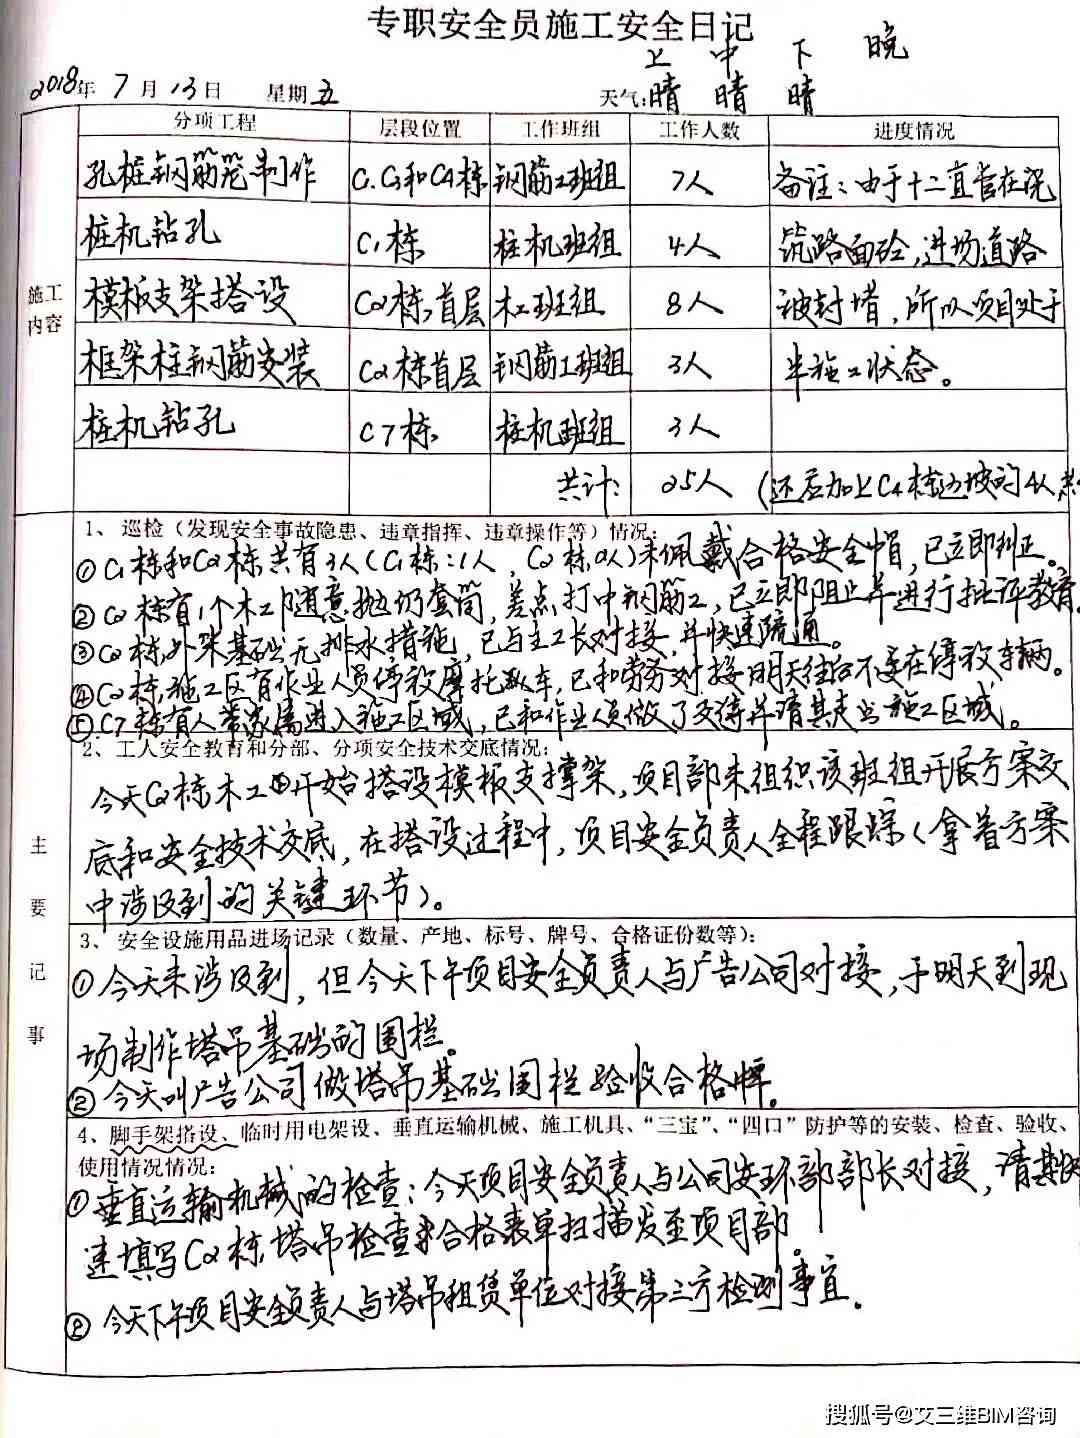 专职安全员施工安全日记
上 中 下 晚
2018年7月13日 星期五 天气:晴 晴 晴
分项工程 层段位置 工作班组 工作人数 进度情况
施工内容
孔桩钢筋笼制作 C1.C3和C4栋 钢筋工班组 7人 备注:由于十二直管在浇
桩机钻孔 C1栋 桩机班组 4人 筑路面砼,进场道路
模板支架搭设 C2栋,首层 木工班组 8人 被封堵,所以项目处于
框架柱钢筋安装 C2栋首层 钢筋工班组 3人 半施工状态。
桩机钻孔 C7栋 桩机班组 3人
共计: 25人 (还应加上C4栋边坡的4人
主要记事
1、巡检(发现安全事故隐患、违章指挥、违章操作等)情况:
①C1栋和C2栋共有3人(C1栋:1人,C2栋2人)未佩戴合格安全帽,已立即纠正。
②C2栋有1个木工随意抛扔套筒,差点打中钢筋工,已立即阻止并进行批评教育
③C2栋,外架基础无排水措施,已与主工长对接,并快速疏通。
④C2栋,施工区有作业人员停放摩托车,已和劳务对接明天往后不要在停放车辆。
⑤C7栋有人带家属进入施工区域,已和作业人员做了交待并请其走出施工区域。
2、工人安全教育和分部、分项安全技术交底情况:
今天C2栋木工开始搭设模板支撑架,项目部未组织该班组开展方案交
底和安全技术交底,在搭设过程中,项目安全负责人全程跟踪(拿着方案
中涉及到的关键环节)。
3、安全设施用品进场记录(数量、产地、标号、牌号、合格证份数等):
①今天未涉及到,但今天下午项目安全负责人与广告公司对接,于明天到现
场制作塔吊基础的围栏。
②今天叫广告公司做塔吊基础围栏验收合格牌。
4、脚手架搭设、临时用电架设、垂直运输机械、施工机具、“三宝”、“四口”防护等的安装、检查、验收、
使用情况情况:
①垂直运输机械的检查:今天项目安全负责人与公司安环部部长对接,请其快
速填写C2栋,塔吊检查合格表单扫描发至项目部。
②今天下午项目安全负责人与塔吊租赁单位对接第三方检测事宜。
搜狐号@艾三维BIM咨询